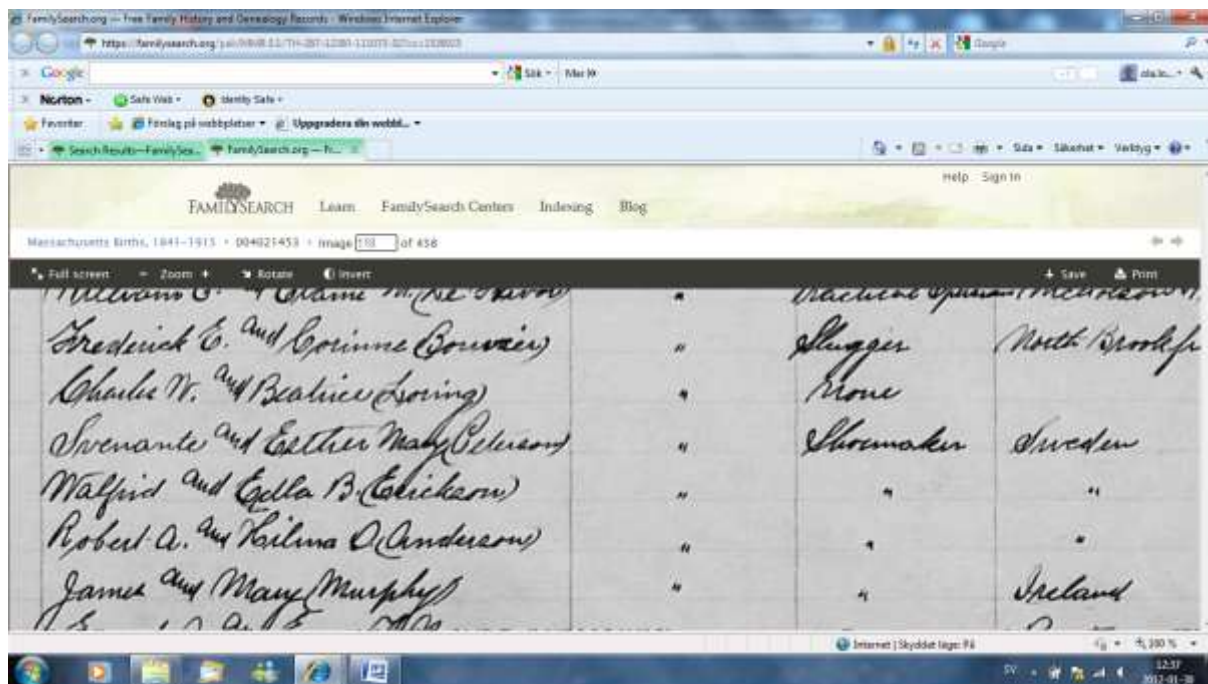 FamilySearch.org — Free Family History and Genealogy Records - Windows Internet Explorer
https://familysearch.org/
Google
Google
Sök
Mer »
Norton
Safe Web
Identity Safe
Favoriter
Förslag på webbplatser
Uppgradera din webbl...
Search Results—FamilySea...
FamilySearch.org — Fr...
Sida
Säkerhet
Verktyg
Help Sign In
FAMILYSEARCH Learn FamilySearch Centers Indexing Blog
Massachusetts Births, 1841-1915 • 004021453 • image of 458
Full screen - Zoom + Rotate Invert + Save Print
Frederick E. and Corinne (Bouvier) " Slugger North Brookf
Charles W. and Beatrice (Loring) " None
Svenante and Esther Mary (Peterson) " Shoemaker Sweden
Walfrid and B. (Erickson) " " "
Robert A. and Hilma O. (Anderson) " " "
James and Mary (Murphy) " " Ireland
Internet | Skyddat läge: På
100 %
SV
12:37
2012-01-30